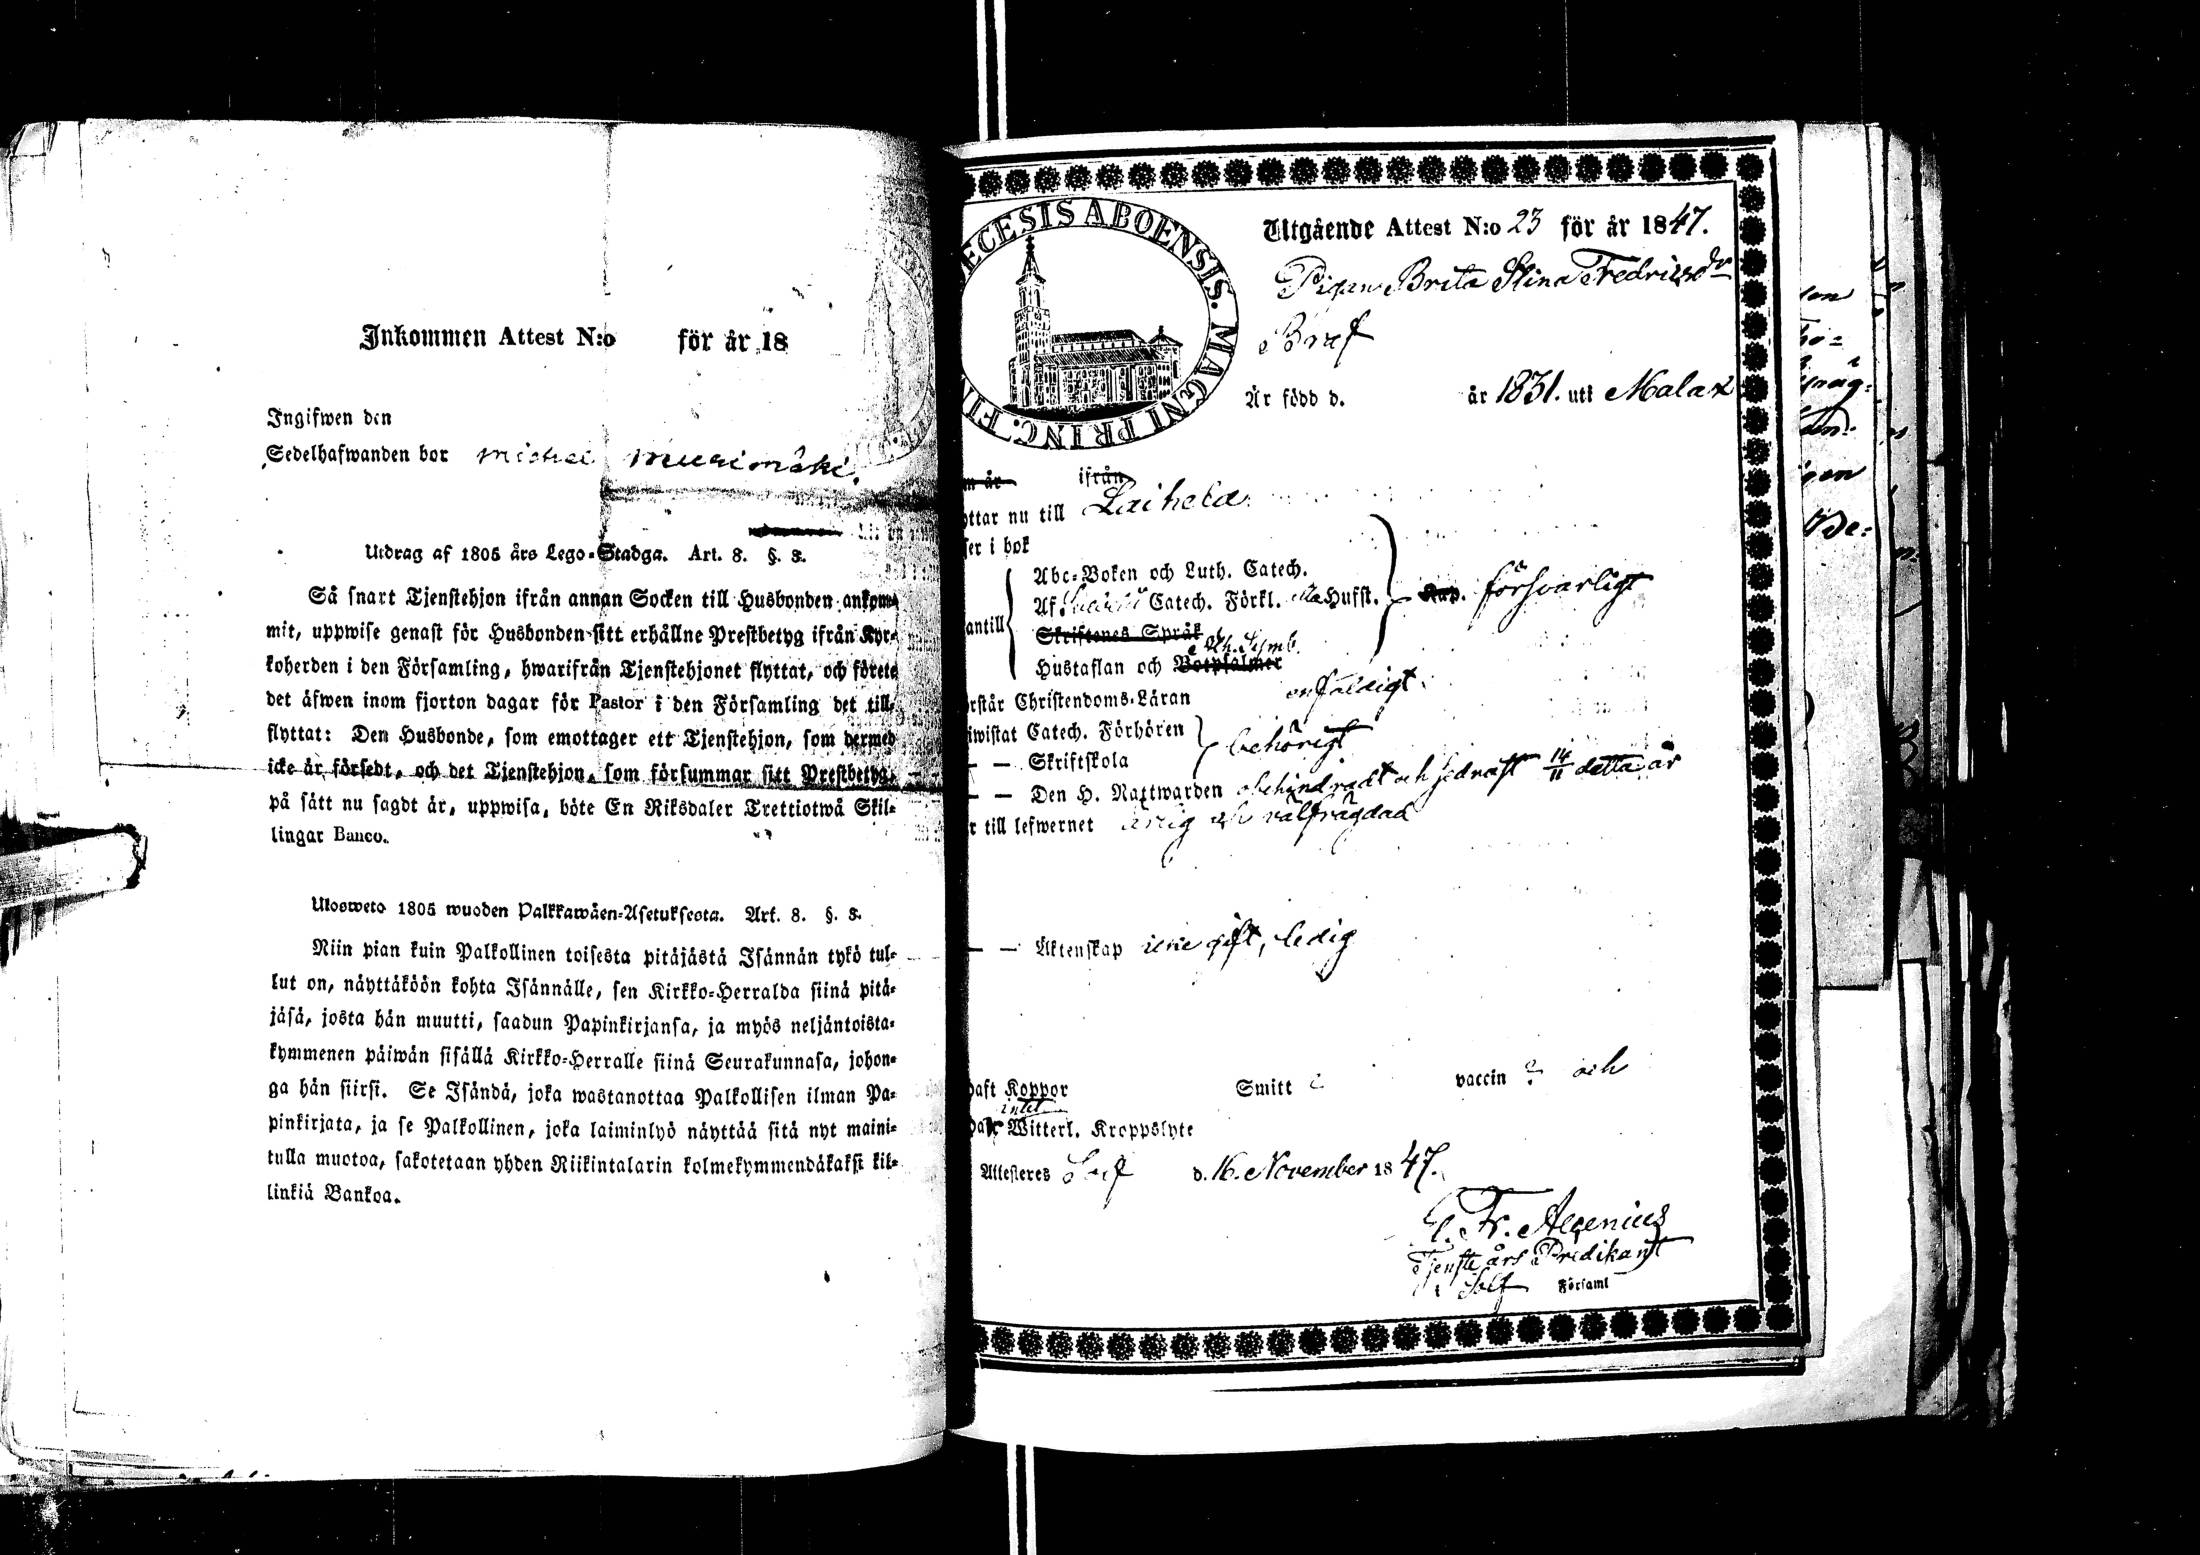 Inkommen Attest N:o för år 18
Ingifwen den
Sedelhafwanden bor Michel
Utdrag af 1805 års Lego-Stadga. Art. 8. §. 8.
Så snart Tjenstehjon ifrån annan Socken till Husbonden ankom-
mit, uppwise genast för Husbonden sitt erhållne Prestbetyg ifrån Kyr-
koherden i den Församling, hwarifrån Tjenstehjonet flyttat, och förete
det äfwen inom fjorton dagar för Pastor i den Församling det till-
flyttat: Den Husbonde, som emottager ett Tjenstehjon, som dermed
icke är försedt, och det Tjenstehjon, som försummar sitt Prestbetyg,
på sätt nu sagdt är, uppwisa, böte En Riksdaler Trettiotwå Skil-
lingar Banco.
Ulosweto 1805 wuoden Palkkawäen-Asetuksesta. Art. 8. §. 8.
Niin pian kuin Palkollinen toisesta pitäjästä Isännän tykö tul-
lut on, näyttäköön kohta Isännälle, sen Kirkko-Herralda siinä pitä-
jäsä, josta hän muutti, saadun Papinkirjansa, ja myös neljäntoista-
kymmenen päiwän sisällä Kirkko-Herralle siinä Seurakunnasa, johon-
ga hän siirsi. Se Isändä, joka wastanottaa Palkollisen ilman Pa-
pinkirjata, ja se Palkollinen, joka laiminlyö näyttää sitä nyt maini-
tulla muotoa, sakotetaan yhden Riikintalarin kolmekymmendäkaksi kil-
linkiä Bankoa.
ECESIS ABOENSIS. MAGNI PRINC. FIN
Utgående Attest N:o 23 för år 1847.
Pigan Brita Stina Fredricsdr
Bref
Är född d. år 1831. uti Malax
n år ifrån
ottar nu till Laihela
ser i bok
Abc-Boken och Luth. Catech.
Af Catech. Förkl. Hufst. Kap. försvarligt
antill Skriftenes Språk
Ath. Symb.
Hustaflan och Botpsalmer
rstår Christendoms-Läran enfaldigt
iwistat Catech. Förhören behörigt
— — Skriftskola
— — Den H. Nattwarden obehindradt och sednast 14/11 detta år
r till lefwernet ärlig och välfrägdad
— — Äktenskap icke gift, ledig
haft Koppor Smitt ? vaccin ? och
intet
haft Witterl. Kroppslyte
Attesteres Solf d. 16. November 1847.
Fr. Alcenius
Tjenste års Predikant
i Solf Församl